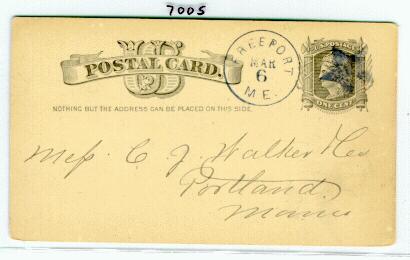 7005
US
POSTAL CARD.
NOTHING BUT THE ADDRESS CAN BE PLACED ON THIS SIDE.
FREEPORT
MAR
6
M.E.
U.S. POSTAGE
ONE CENT
Mess C. J. Walker & Co
Portland
Maine